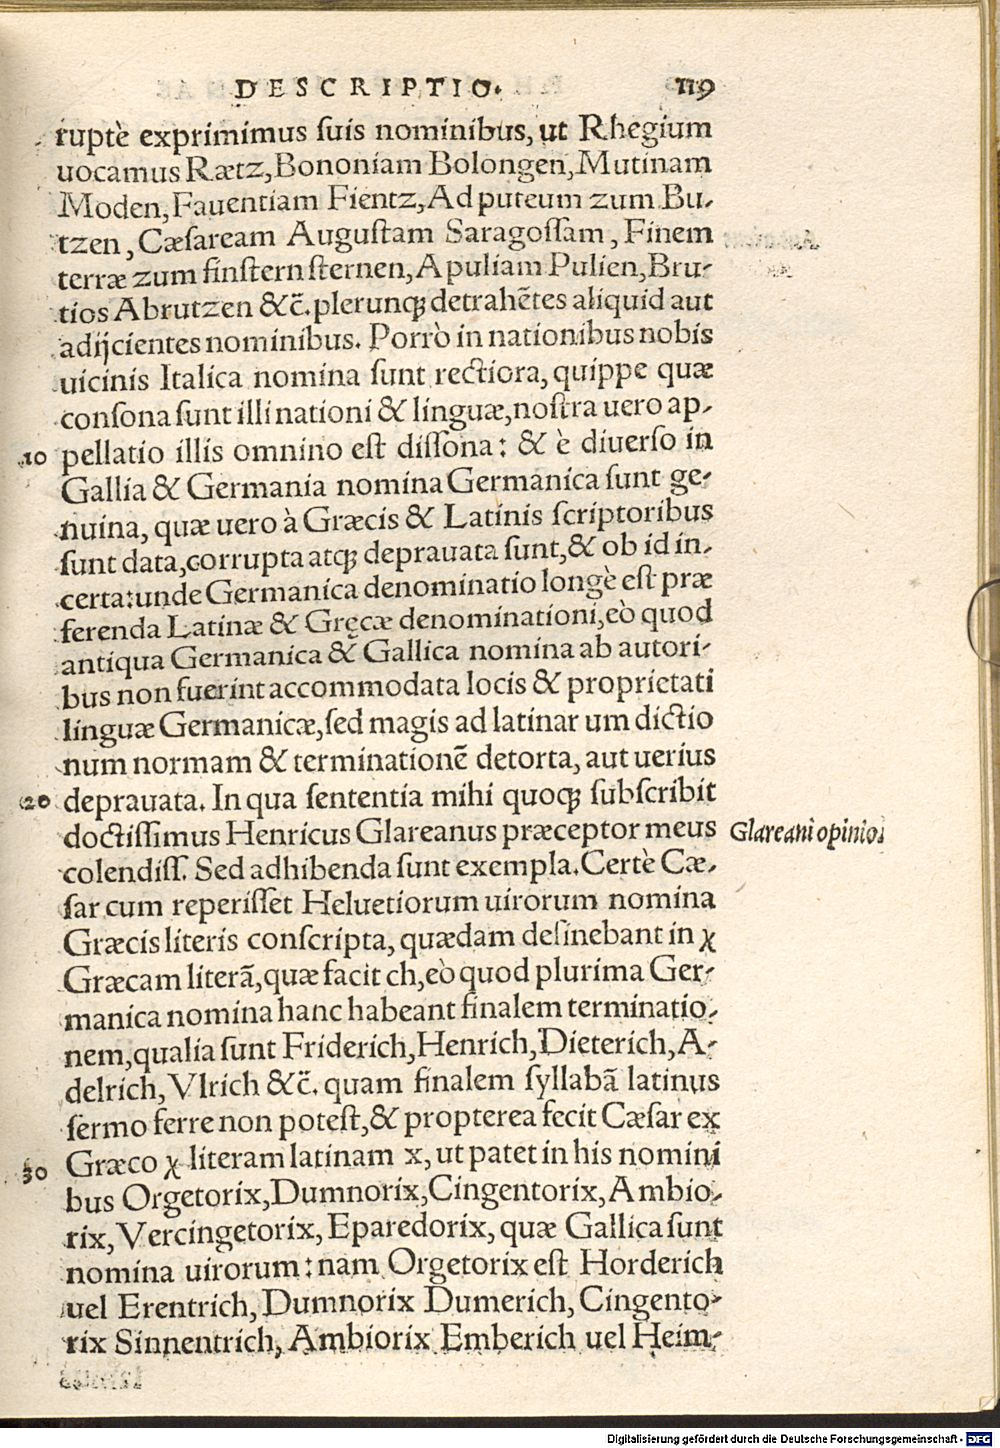 DESCRIPTIO. 119
ruptè exprimimus ſuis nominibus, ut Rhegium
uocamus Rætz, Bononiam Bolongen, Mutinam
Moden, Fauentiam Fientz, Ad puteum zum Bu-
tzen, Cæſaream Auguſtam Saragoſſam, Finem
terræ zum finſtern ſternen, Apuliam Pulien, Bru-
tios Abrutzen &c̄. plerunq; detrahētes aliquid aut
adijcientes nominibus. Porrò in nationibus nobis
uicinis Italica nomina ſunt rectiora, quippe quæ
conſona ſunt illi nationi & linguæ, noſtra uero ap-
10 pellatio illis omnino eſt diſſona: & è diuerſo in
Gallia & Germania nomina Germanica ſunt ge-
nuina, quæ uero à Græcis & Latinis ſcriptoribus
ſunt data, corrupta atq; deprauata ſunt, & ob id in-
certa: unde Germanica denominatio longè eſt præ
ferenda Latinæ & Gręcæ denominationi, eò quod
antiqua Germanica & Gallica nomina ab autori-
bus non fuerint accommodata locis & proprietati
linguæ Germanicæ, ſed magis ad latinar um dictio
num normam & terminationē detorta, aut uerius
20 deprauata. In qua ſententia mihi quoq; ſubſcribit
doctiſſimus Henricus Glareanus præceptor meus Glareani opinio.
colendiſſ. Sed adhibenda ſunt exempla. Certè Cæ-
ſar cum reperiſſet Heluetiorum uirorum nomina
Græcis literis conſcripta, quædam deſinebant in χ
Græcam literā, quæ facit ch, eò quod plurima Ger-
manica nomina hanc habeant finalem terminatio-
nem, qualia ſunt Friderich, Henrich, Dieterich, A-
delrich, Vlrich &c̄. quam finalem ſyllabā latinus
ſermo ferre non poteſt, & propterea fecit Cæſar ex
30 Græco χ literam latinam x, ut patet in his nomini
bus Orgetorix, Dumnorix, Cingentorix, Ambio-
rix, Vercingetorix, Eparedorix, quæ Gallica ſunt
nomina uirorum: nam Orgetorix eſt Horderich
uel Erentrich, Dumnorix Dumerich, Cingento-
rix Sinnentrich, Ambiorix Emberich uel Heim-
Digitalisierung gefördert durch die Deutsche Forschungsgemeinschaft - DFG